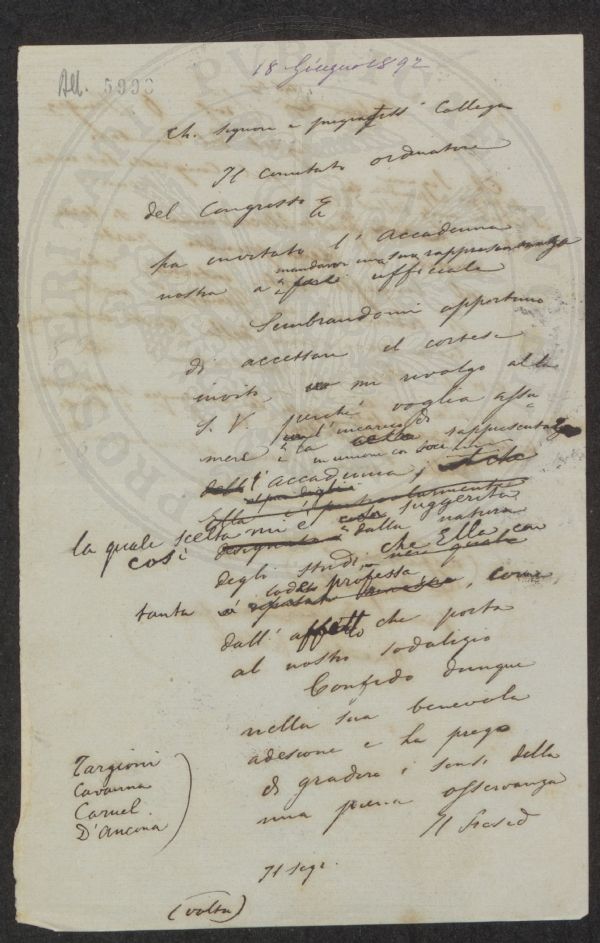 All. 5993
18 Giugno 1892
Ch. Signore e pregiatiss. Collega
Il Comitato ordinatore
del Congresso
ha invitato l'Accademia
mandarvi una sua rappresentanza
nostra a ufficiale
Sembrandomi opportuno
di accettare il cortese
invito mi rivolgo alla
S. V. perché voglia assu
l'incarico di
mere la rappresentanza
in unione con
dell'Accademia,
Ella
la quale scelta mi è suggerita
così designata dalla natura
degli studi che Ella con
tanta lode professa, come
dall'affetto che porta
al nostro sodalizio
Confido dunque
nella sua benevola
adesione e la prego
di gradire i sensi della
mia piena osservanza
Il Presid
Targioni
Cavanna
Caruel
D'Ancona
Il Segr.
(volta)
PROSPERITATI PUBLICAE